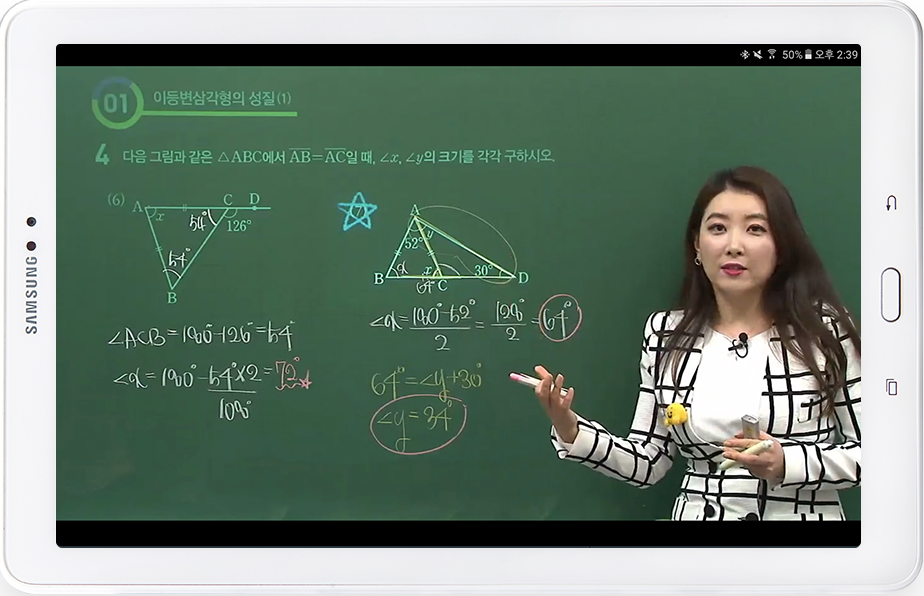 50% 오후 2:39
01 이등변삼각형의 성질(1)
4 다음 그림과 같은 △ABC에서 AB=AC일 때, ∠x, ∠y의 크기를 각각 구하시오.
(6)
A x 54° C D
126°
54°
B
∠ACB=180°-126°=54°
∠x=180°-54°×2=72°
108°
7
A
y
52°
B x x C 30° D
64°
∠x=180°-52°/2=128°/2=64°
64°=∠y+30°
∠y=34°
SAMSUNG